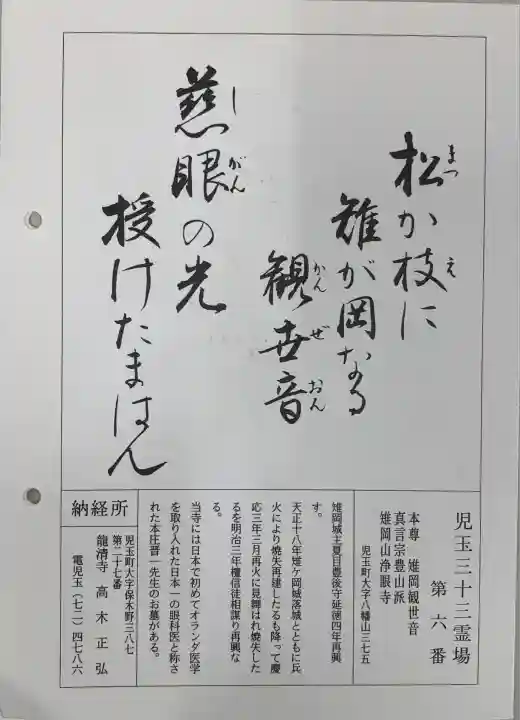 松か枝に
まつ え
雉が岡なる
観世音
かん ぜ おん
慈眼の光
じ がん
授けたまはん
児玉三十三霊場
第六番
本尊 雉岡観世音
真言宗豊山派
雉岡山浄眼寺
児玉町大字八幡山三七五
雉岡城主夏目豊後守延徳四年再興
す。
天正十八年雉ケ岡城落城とともに兵
火により焼失再建したるも降って慶
応三年三月再火に見舞はれ焼失した
るを明治三年檀信徒相謀り再興な
る。
当寺には日本で初めてオランダ医学
を取り入れた日本一の眼科医と称さ
れた本庄普一先生のお墓がある。
納経所
児玉町大字保木野三八七
第二十七番
龍清寺 高木正弘
電児玉(七二)四七八六